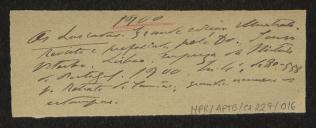 1900
Os Lusiadas. Grande edição illustrada.
Revista e prefaciada pelo Dr. Sousa
Viterbo. Lisboa. Empreza da Historia
de Portugal. 1900. In-4.º de 558
p. Retrato de Camões,
estampas.
MPR/APTB/Cx 229/016